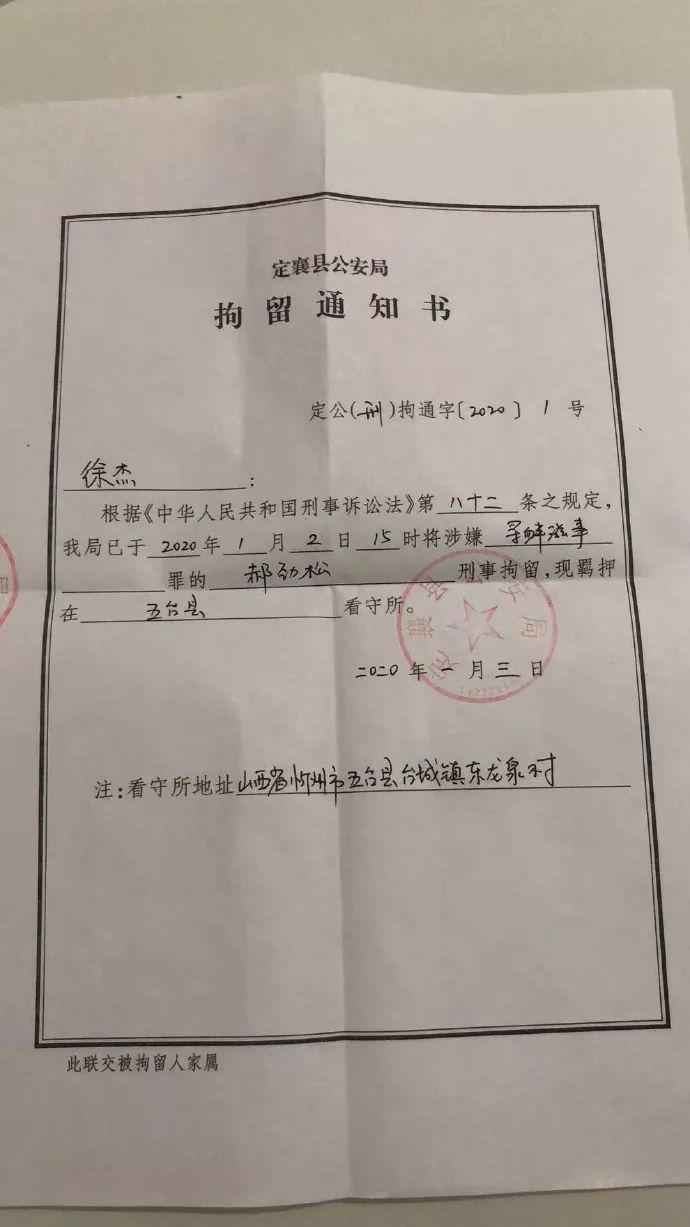 定襄县公安局
拘留通知书
定公(刑)拘通字[2020] 1 号
徐杰:
根据《中华人民共和国刑事诉讼法》第八十二条之规定,
我局已于2020年1月2日15时将涉嫌寻衅滋事
罪的郝劲松刑事拘留,现羁押
在五台县看守所。
定襄县公安局
二〇二〇年一月三日
注:看守所地址山西省忻州市五台县台城镇东龙泉村
此联交被拘留人家属